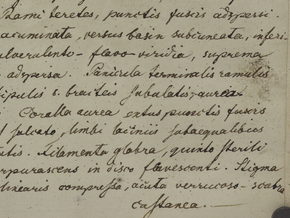 Rami teretes, punctis fuscis adspersi.
acuminata, versus basin subcuneata, inferi-
pulverulento-flavo-viridia, suprema
adspersa. Panicula terminalis ramulis
stipulis & bracteis subulatis, aurea
Corolla aurea extus punctis fuscis
sulcato, limbi laciniis subaequalibus
Filamenta glabra, quinto sterili
purpurascens in disco flavescenti. Stigma
linearis compressa, acuta verrucoso-scabra
castanea.